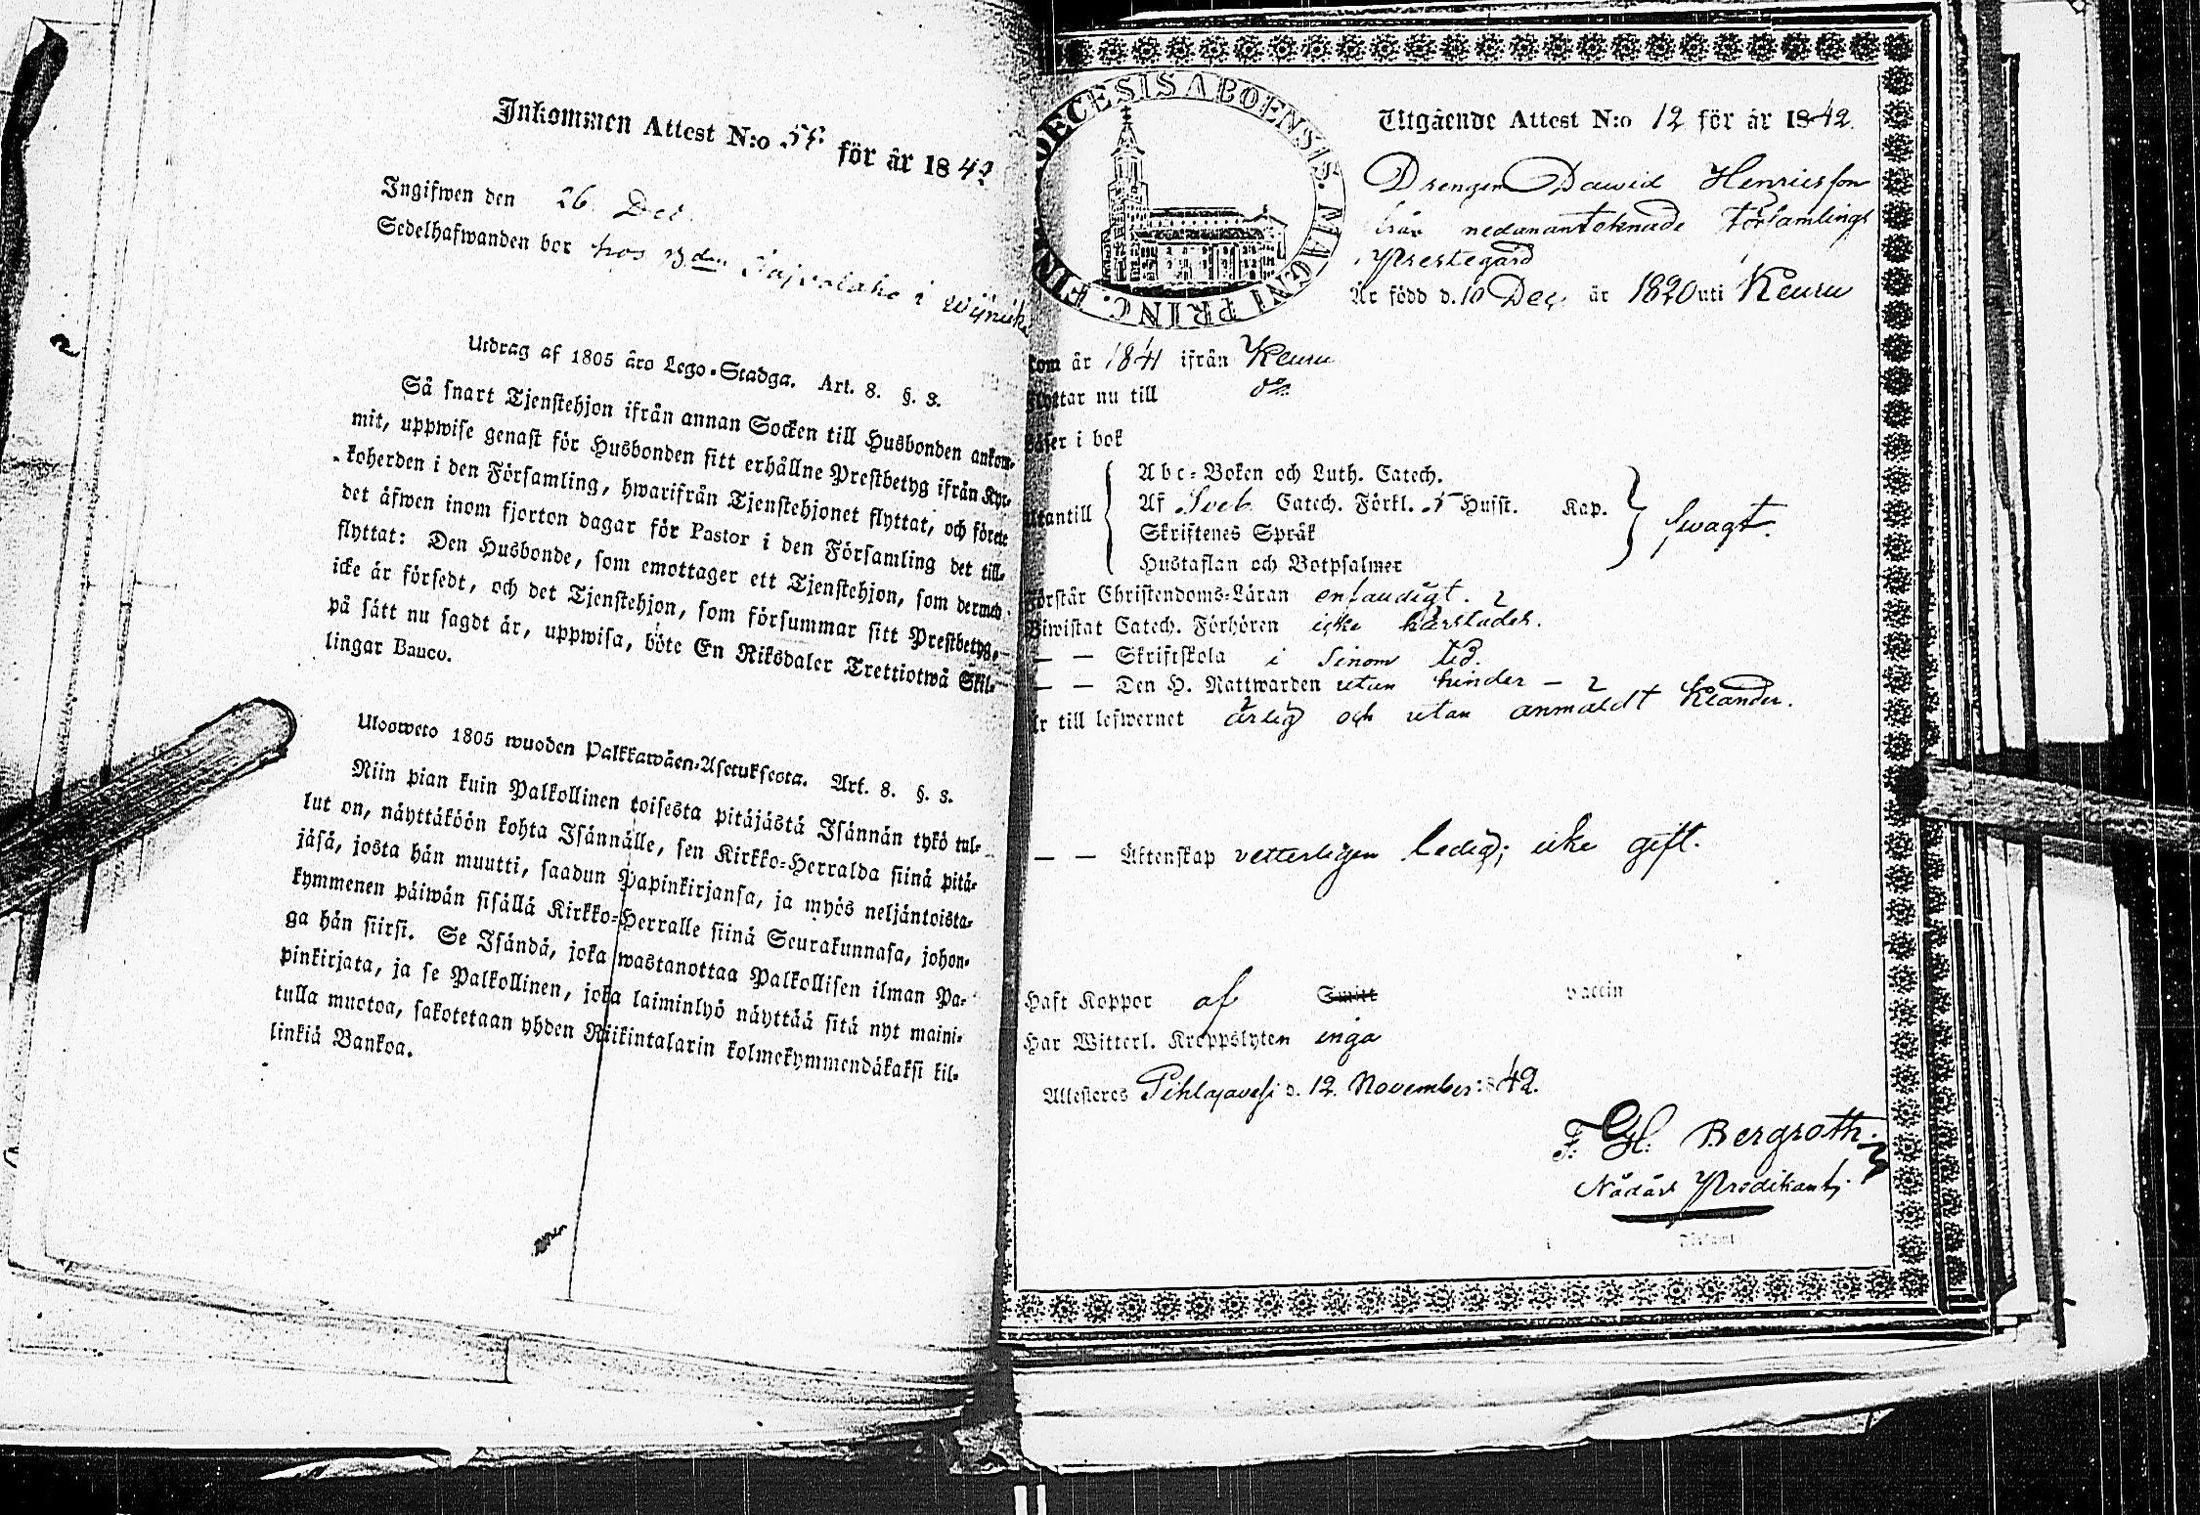 Inkommen Attest N:o för år 1842
Ingifwen den 26 Dec.
Sedelhafwanden bor hos i
Utdrag af 1805 åro Lego-Stadga. Art. 8. §. 3.
Så snart Tjenstehjon ifrån annan Socken till Husbonden ankom-
mit, uppwise genast för Husbonden sitt erhållne Prestbetyg ifrån Kyr-
koherden i den Församling, hwarifrån Tjenstehjonet flyttat, och förete
det äfwen inom fjorton dagar för Pastor i den Församling det till-
flyttat: Den Husbonde, som emottager ett Tjenstehjon, som dermed
icke är försedt, och det Tjenstehjon, som försummar sitt Prestbetyg,
på sätt nu sagdt är, uppwisa, böte En Riksdaler Trettiotwå Skil-
lingar Banco.
Ulosweto 1805 wuoden Palkkawäen-Asetuksesta. Art. 8. §. 3.
Niin pian kuin Palkollinen toisesta pitäjästä Isännän tykö tul-
lut on, näyttäköön kohta Isännälle, sen Kirkko-Herralda siinä pitä-
jäsä, josta hän muutti, saadun Papinkirjansa, ja myös neljäntoista-
kymmenen päiwän sisällä Kirkko-Herralle siinä Seurakunnasa, johon-
ga hän siirsi. Se Isändä, joka wastanottaa Palkollisen ilman Pa-
pinkirjata, ja se Palkollinen, joka laiminlyö näyttää sitä nyt maini-
tulla muotoa, sakotetaan yhden Riikintalarin kolmekymmendäkaksi kil-
linkiä Bankoa.
DIOECESIS ABOENSIS. MAGNI PRINC. FIN
Utgående Attest N:o 12 för år 1842.
Drengen Dawid Henricsson
från nedanantecknade Församlings
Prestegård
Är född d. 10 Dec. år 1820 uti Keuru
kom år 1841 ifrån Keuru
flyttar nu till do
Läser i bok
Utantill
Abc-Boken och Luth. Catech.
Af Sveb. Catech. Förkl. 5 Hufst. Kap.
Skriftenes Språk
Hustaflan och Botpsalmer
swagt.
Förstår Christendoms-Läran enfaudigt.
Biwistat Catech. Förhören icke härstädes.
— — Skriftskola i sinom tid.
— — Den H. Nattwarden utan hinder —
Är till lefwernet ärlig och utan anmäldt klander.
— — Äktenskap vetterligen ledig; icke gift.
Haft Koppor af Smitt Vaccin
Har Witterl. Kroppslyten inga
Attesteres Pihlajavesi d. 12. November 1842.
F. H. Bergroth.
Nådårs Predikant.